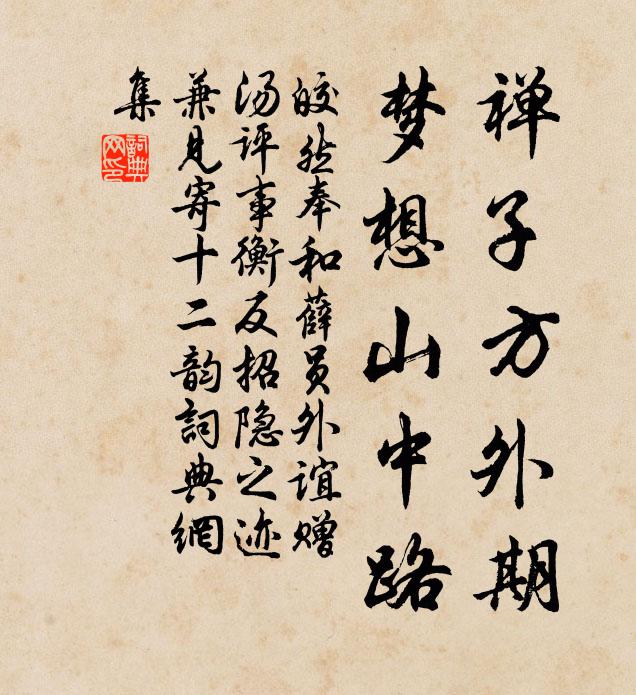 禅子方外期
梦想山中路
皎然奉和薛员外谊赠
汤评事衡反招隐之迹
兼见寄十二韵词典網
集
詞典網印